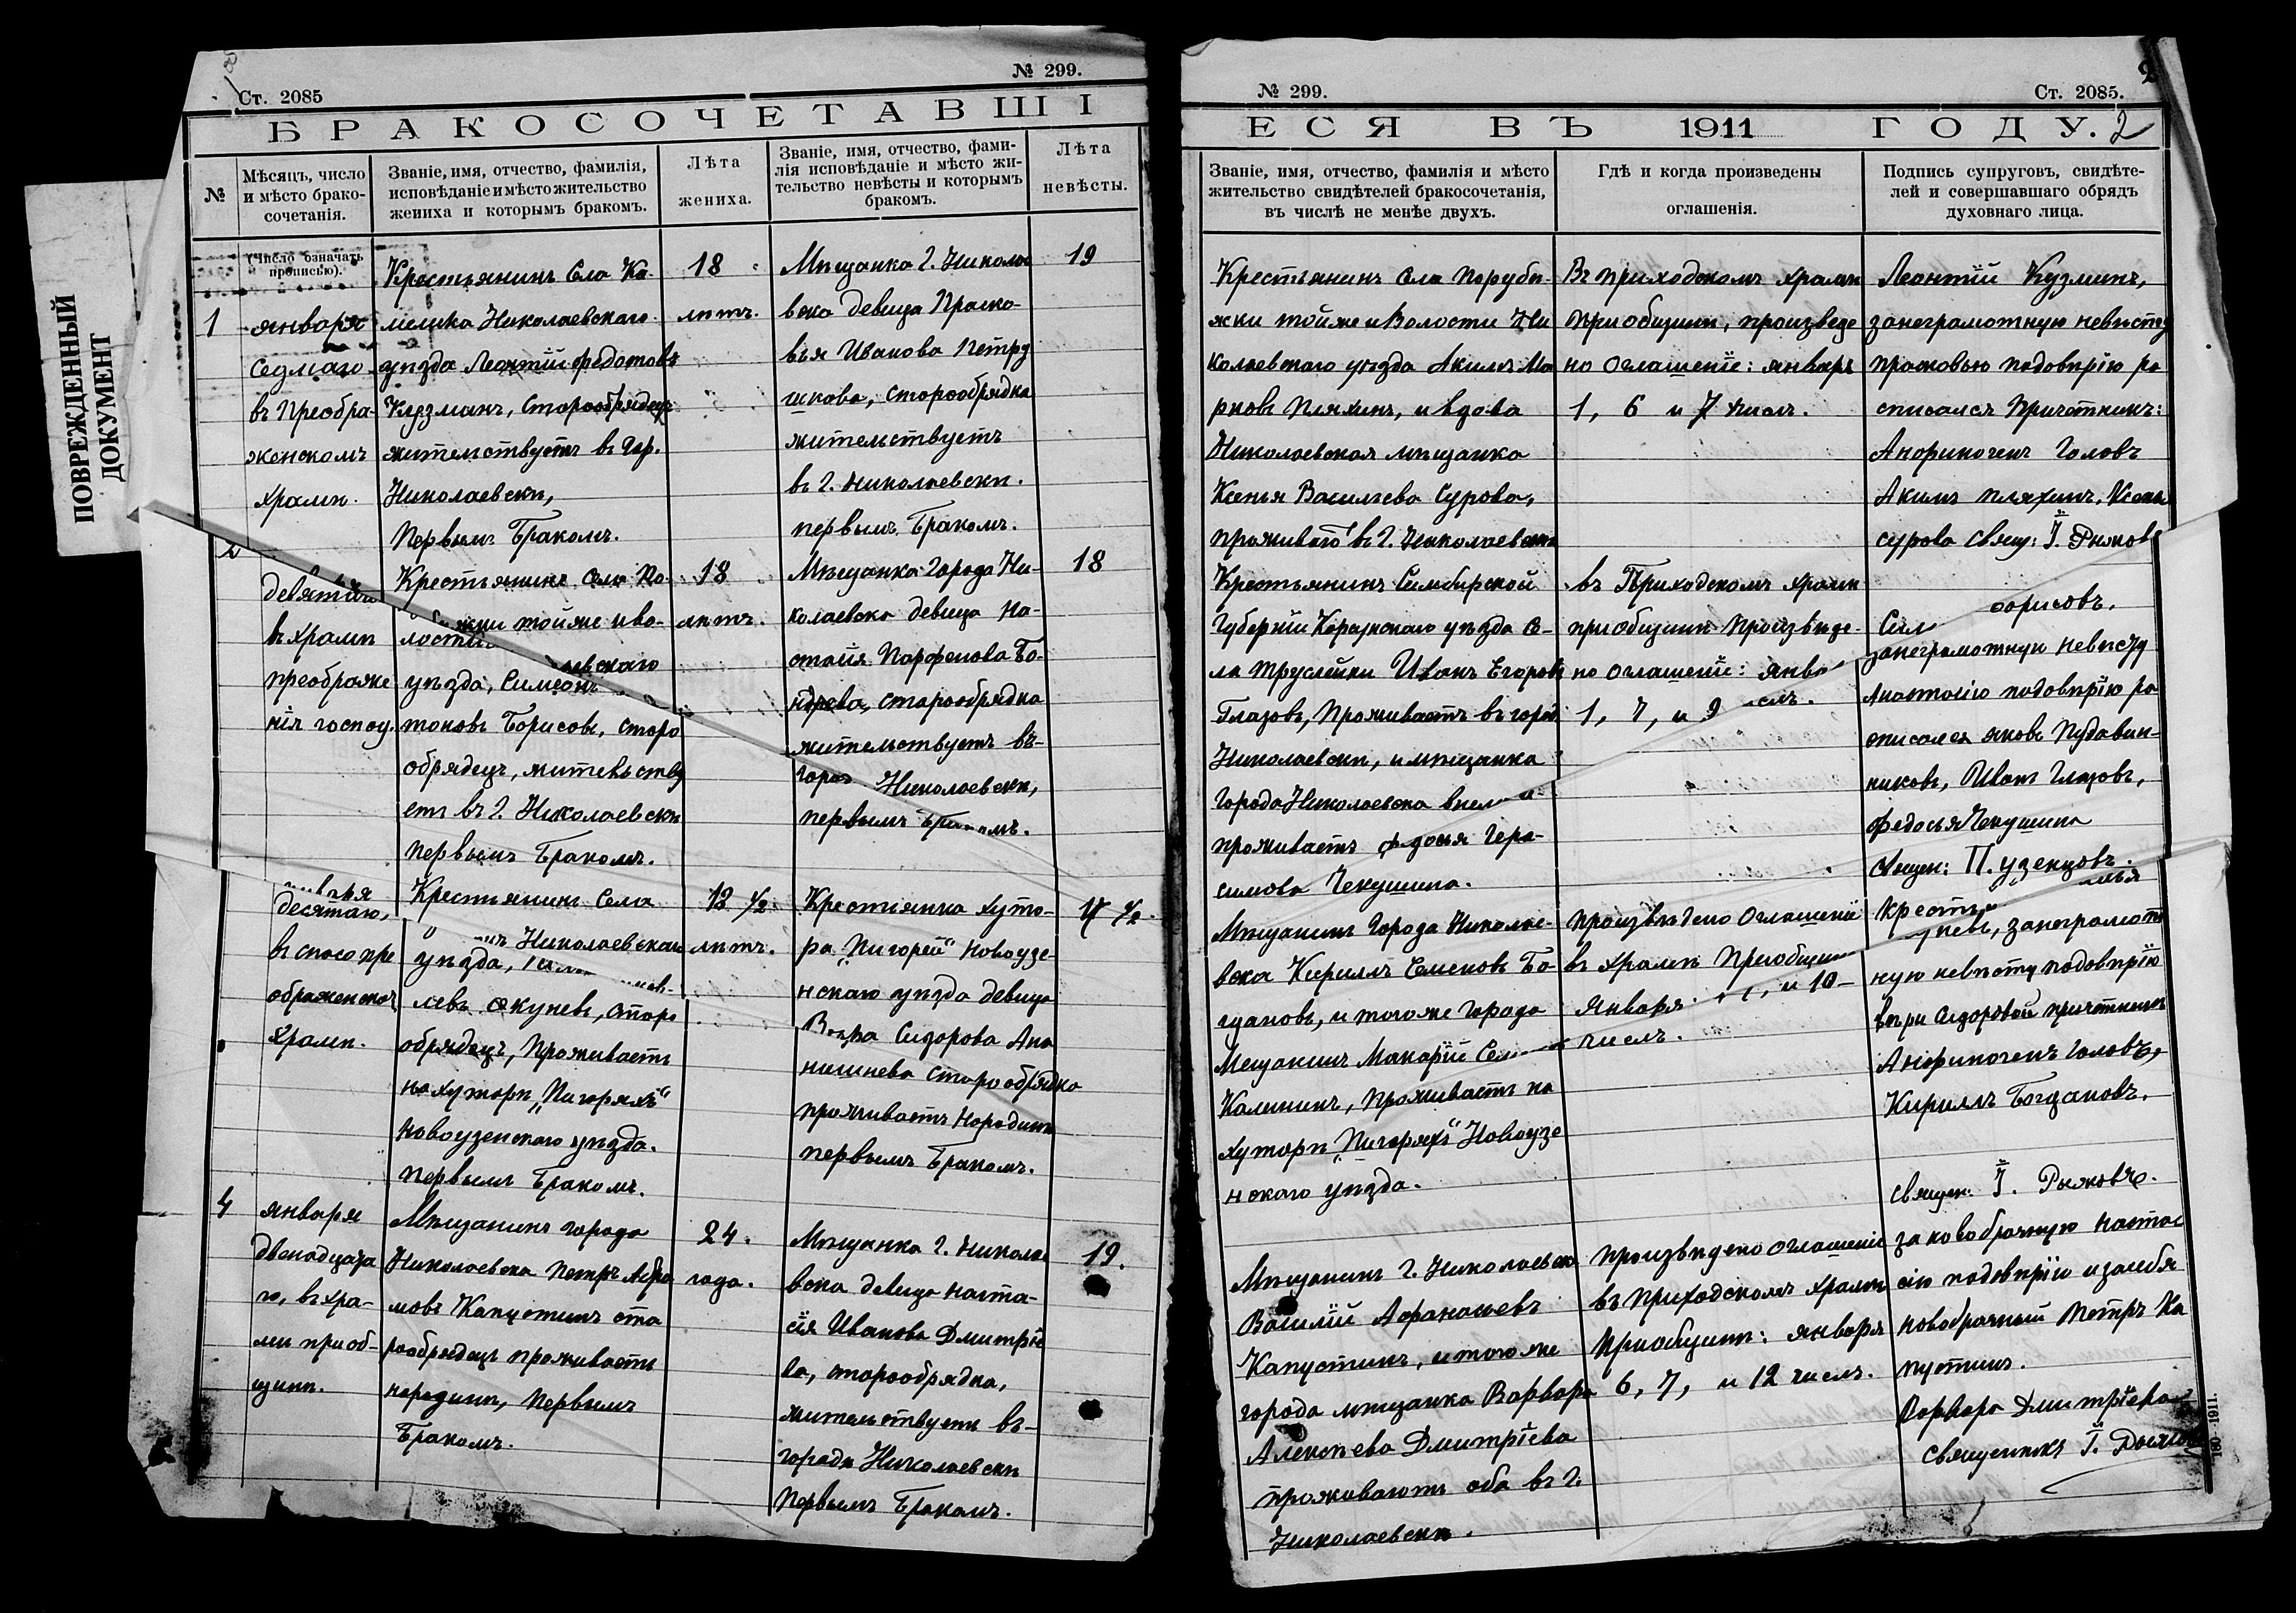 ПОВРЕЖДЕННЫЙ
ДОКУМЕНТ
Ст. 2085
№ 299.
БРАКОСОЧЕТАВШІ
№
Мѣсяцъ, число
и мѣсто брако-
сочетанія.
Званіе, имя, отчество, фамилія,
исповѣданіе и мѣсто жительство
жениха и которымъ бракомъ.
Лѣта
жениха.
Званіе, имя, отчество, фами-
лія исповѣданіе и мѣсто жи-
тельство невѣсты и которымъ
бракомъ.
Лѣта
невѣсты.
(Число означать
прописью).
1
января
седмаго
въ Преобра-
женскомъ
храмѣ.
Крестьянинъ Села Ка-
мелика Николаевскаго
уѣзда Леонтій Федотовъ
Кузминъ, старообрядецъ
жительствуетъ въ Гор.
Николаевскѣ,
Первымъ Бракомъ.
18
лѣтъ.
Мѣщанка Г. Никола
вска девица Праско-
вья Иванова Петру
шкова, старообрядка
жительствуетъ
въ Г. Николаевскѣ.
первымъ Бракомъ.
19
2
девятаго
въ храмѣ
преображе
нія господ.
Крестьянинъ Села По-
жки тойже и во-
лости
аевскаго
уѣзда, Симеонъ
тоновъ Борисовъ, старо
обрядецъ, жительству
етъ въ Г. Николаевскѣ
Первымъ Бракомъ.
18
лѣтъ.
Мѣщанка Города Ни-
колаевска девица На-
стасія Парфенова Бо-
ндрева, старообрядка
жительствуетъ въ-
город Николаевскѣ,
первымъ Бракомъ.
18
января
десятаго,
въ спасопре
ображенском
храмѣ.
Крестьянинъ Села
Николаевскаго
уѣзда,
левъ Окуневъ, старо
обрядецъ, Проживаетъ
на хуторѣ „Пигоряхъ“
Новоузенского уѣзда.
первымъ Бракомъ.
18 ½
лѣтъ.
Крестьянка хуто-
ра „Пигорей“ Новоузе-
нскаго уѣзда девица
Вѣра Сидорова Ана
нишнева старообрядка
проживаетъ Народинѣ
первымъ Бракомъ.
17 ½
4
января
двенадцата
го, въ хра-
мѣ приоб-
щинѣ.
Мѣщанинъ города
Николаевска Петръ Абра
мовъ Капустинъ ста
рообрядецъ проживаетъ
народинѣ, первымъ
Бракомъ.
24.
года.
Мѣщанка Г. Никола
вска девица Наста-
сія Иванова Дмитріе
ва, старообрядка,
жительствуетъ въ-
городѣ Николаевскѣ
первымъ Бракомъ.
19.
№ 299.
Ст. 2085.
2
ЕСЯ ВЪ 1911 ГОДУ.
2
Званіе, имя, отчество, фамилія и мѣсто
жительство свидѣтелей бракосочетанія,
въ числѣ не менѣе двухъ.
Гдѣ и когда произведены
оглашенія.
Подпись супруговъ, свидѣте-
лей и совершавшаго обрядъ
духовнаго лица.
Крестьянинъ Села Порубѣ-
жки тойже и Волости Ни
колаевскаго уѣзда Акимъ Ма
рковъ Пляхинъ, и вдова
Николаевская мѣщанка
Ксенья Васильева Сурова,
проживаютъ въ Г. Николаевскѣ
Въ приходскомъ храмѣ
приобщинѣ, произведе
но оглашеніе: январъ
1, 6 и 7 числ.
Леонтій Кузминъ,
занеграмотную невѣсту
прасковью подовѣрію ра
списался Причетникъ:
Анфиногенъ Головъ
Акимъ Пляхинъ, Ксень
сурова свящ: І. Рыжовъ
Крестьянинъ Симбирской
Губерніи Корсунскаго уѣзда Се-
ла Труслейки Иванъ Егоровъ
Глазовъ, Проживаетъ въ город
Николаевскѣ, и мѣщанка
Города Николаевска
проживаетъ Федосья Гера-
симова Чекушина.
въ Приходскомъ храмѣ
приобщинѣ Произвѣде-
но оглашеніе: янва
1, 7, и 9
Борисовъ,
занеграмотную невѣсту
Анастасію подовѣрію ра
списался яковъ Пудовин-
никовъ, Иванъ Глазовъ,
Федосья Чекушина
Свящ: П. узенцовъ.
Мѣщанинъ Города Николае-
вска Кирилъ Семеновъ Бо-
гдановъ, и того же Города
Мещанинъ Макарій Сем
Калининъ, Проживаетъ на
хуторѣ „Пигоряхъ“ Новоузе
нскаго уѣзда.
Произвѣдено Оглашеніе
въ храмѣ Приобщин
Января и 10-
числъ.
Кресть
уневъ, занеграмот
ную невѣсту подовѣрію
вѣры Сидоровой причетникъ
Анфиногенъ Головъ,
Кирилъ Богдановъ.
Священ. І. Рыжовъ.
Мѣщанинъ Г. Николаевска
Василій Афанасьевъ
Капустинъ, и того же
города мѣщанка Варвара
Алексѣева Дмитріева
проживаютъ оба въ Г.
Николаевскѣ.
Произвѣдено оглашеніе
въ приходскомъ храмѣ
Приобщинѣ: января
6, 7, и 12 числъ.
за новобрачную Настас
сію подовѣрію изасебя
новобрачный Петръ Ка
пустинъ.
Варвара Дмитріева
Священникъ І. Рыжовъ
180 -1911.